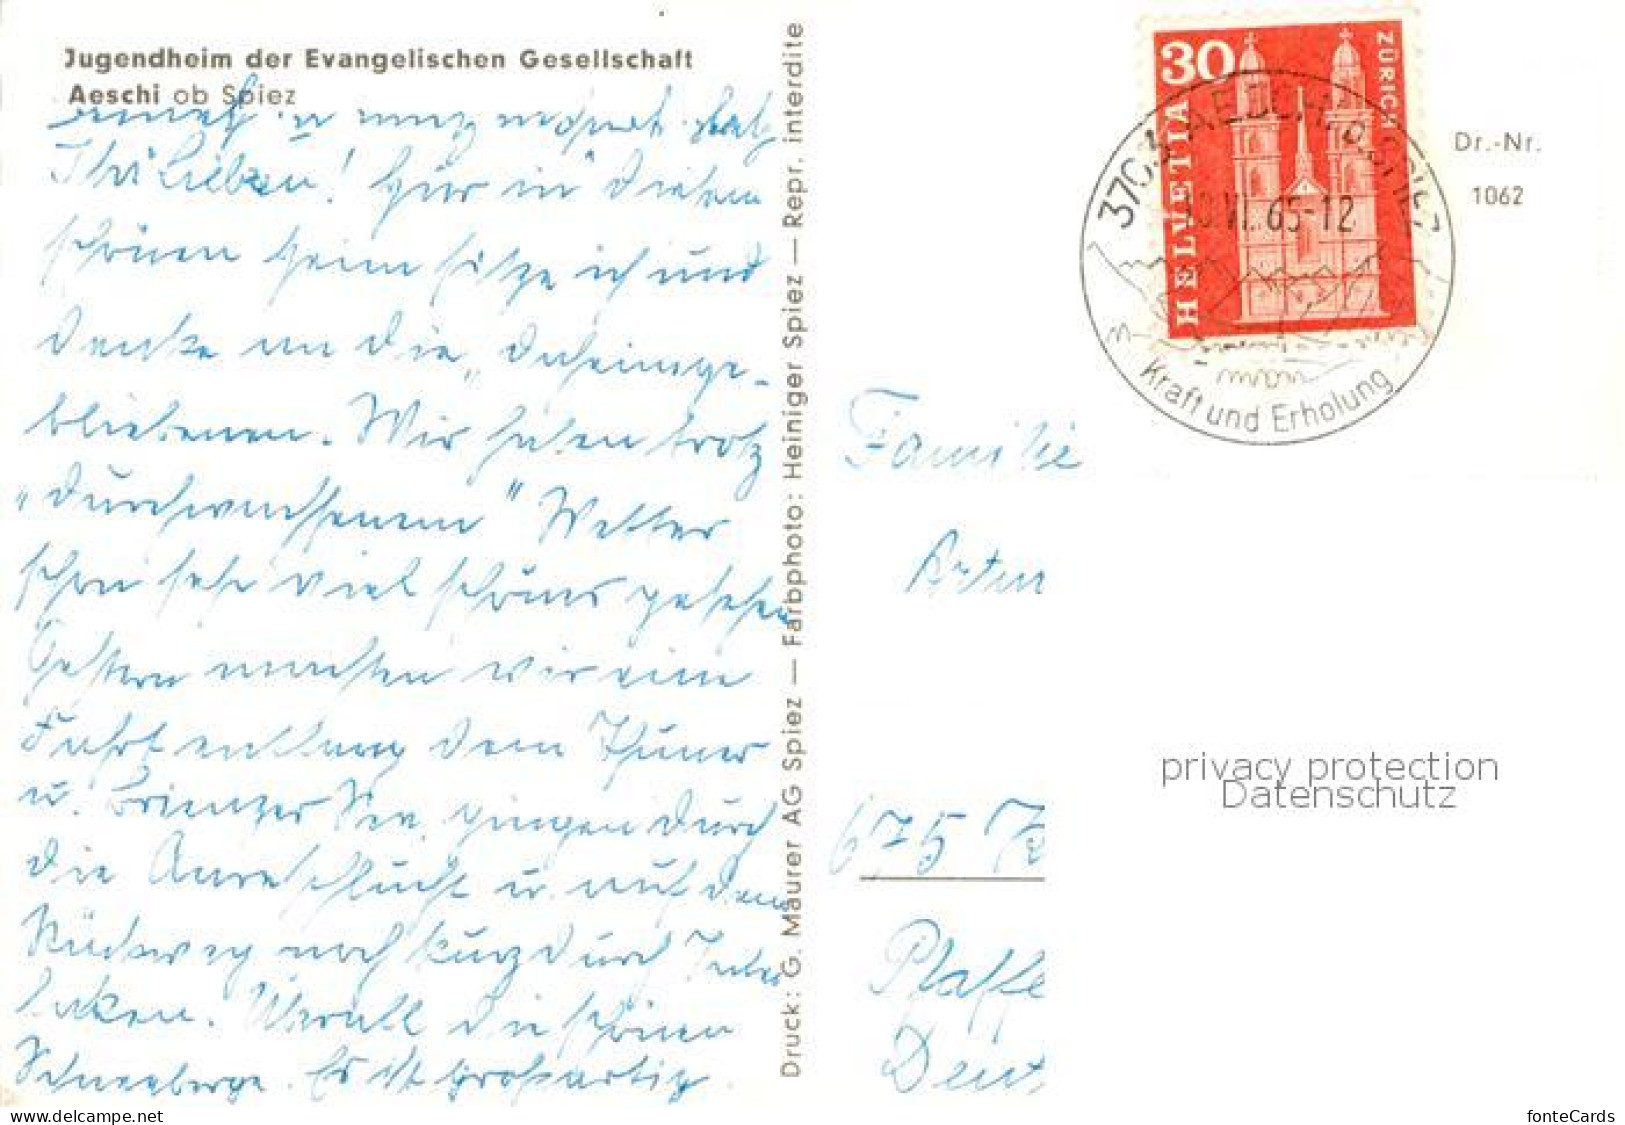 Jugendheim der Evangelischen Gesellschaft
Aeschi ob Spiez
Ihr Lieben! Hier in diesem
schönen Heim sitze ich und
denke an die „Daheimge-
bliebenen. Wir haben trotz
„durchwachsenem" Wetter
schon sehr viel schönes gesehen
Gestern machten wir eine
Fahrt entlang dem Thuner
u. Brienzer See, gingen durch
die Aareschlucht u. auf dem
Rückweg noch kurz durch Inter
laken. Überall die schönen
Schneeberge. Es ist großartig
Druck: G. Maurer AG Spiez — Farbphoto: Heiniger Spiez — Repr. interdite
30
HELVETIA
ZÜRICH
3703 AESCHI b. SPIEZ
VI. 65-12
Kraft und Erholung
Dr.-Nr.
1062
Familie
Artur
675
Pfaffe
Deut
privacy protection
Datenschutz
www.delcampe.net
fonteCards